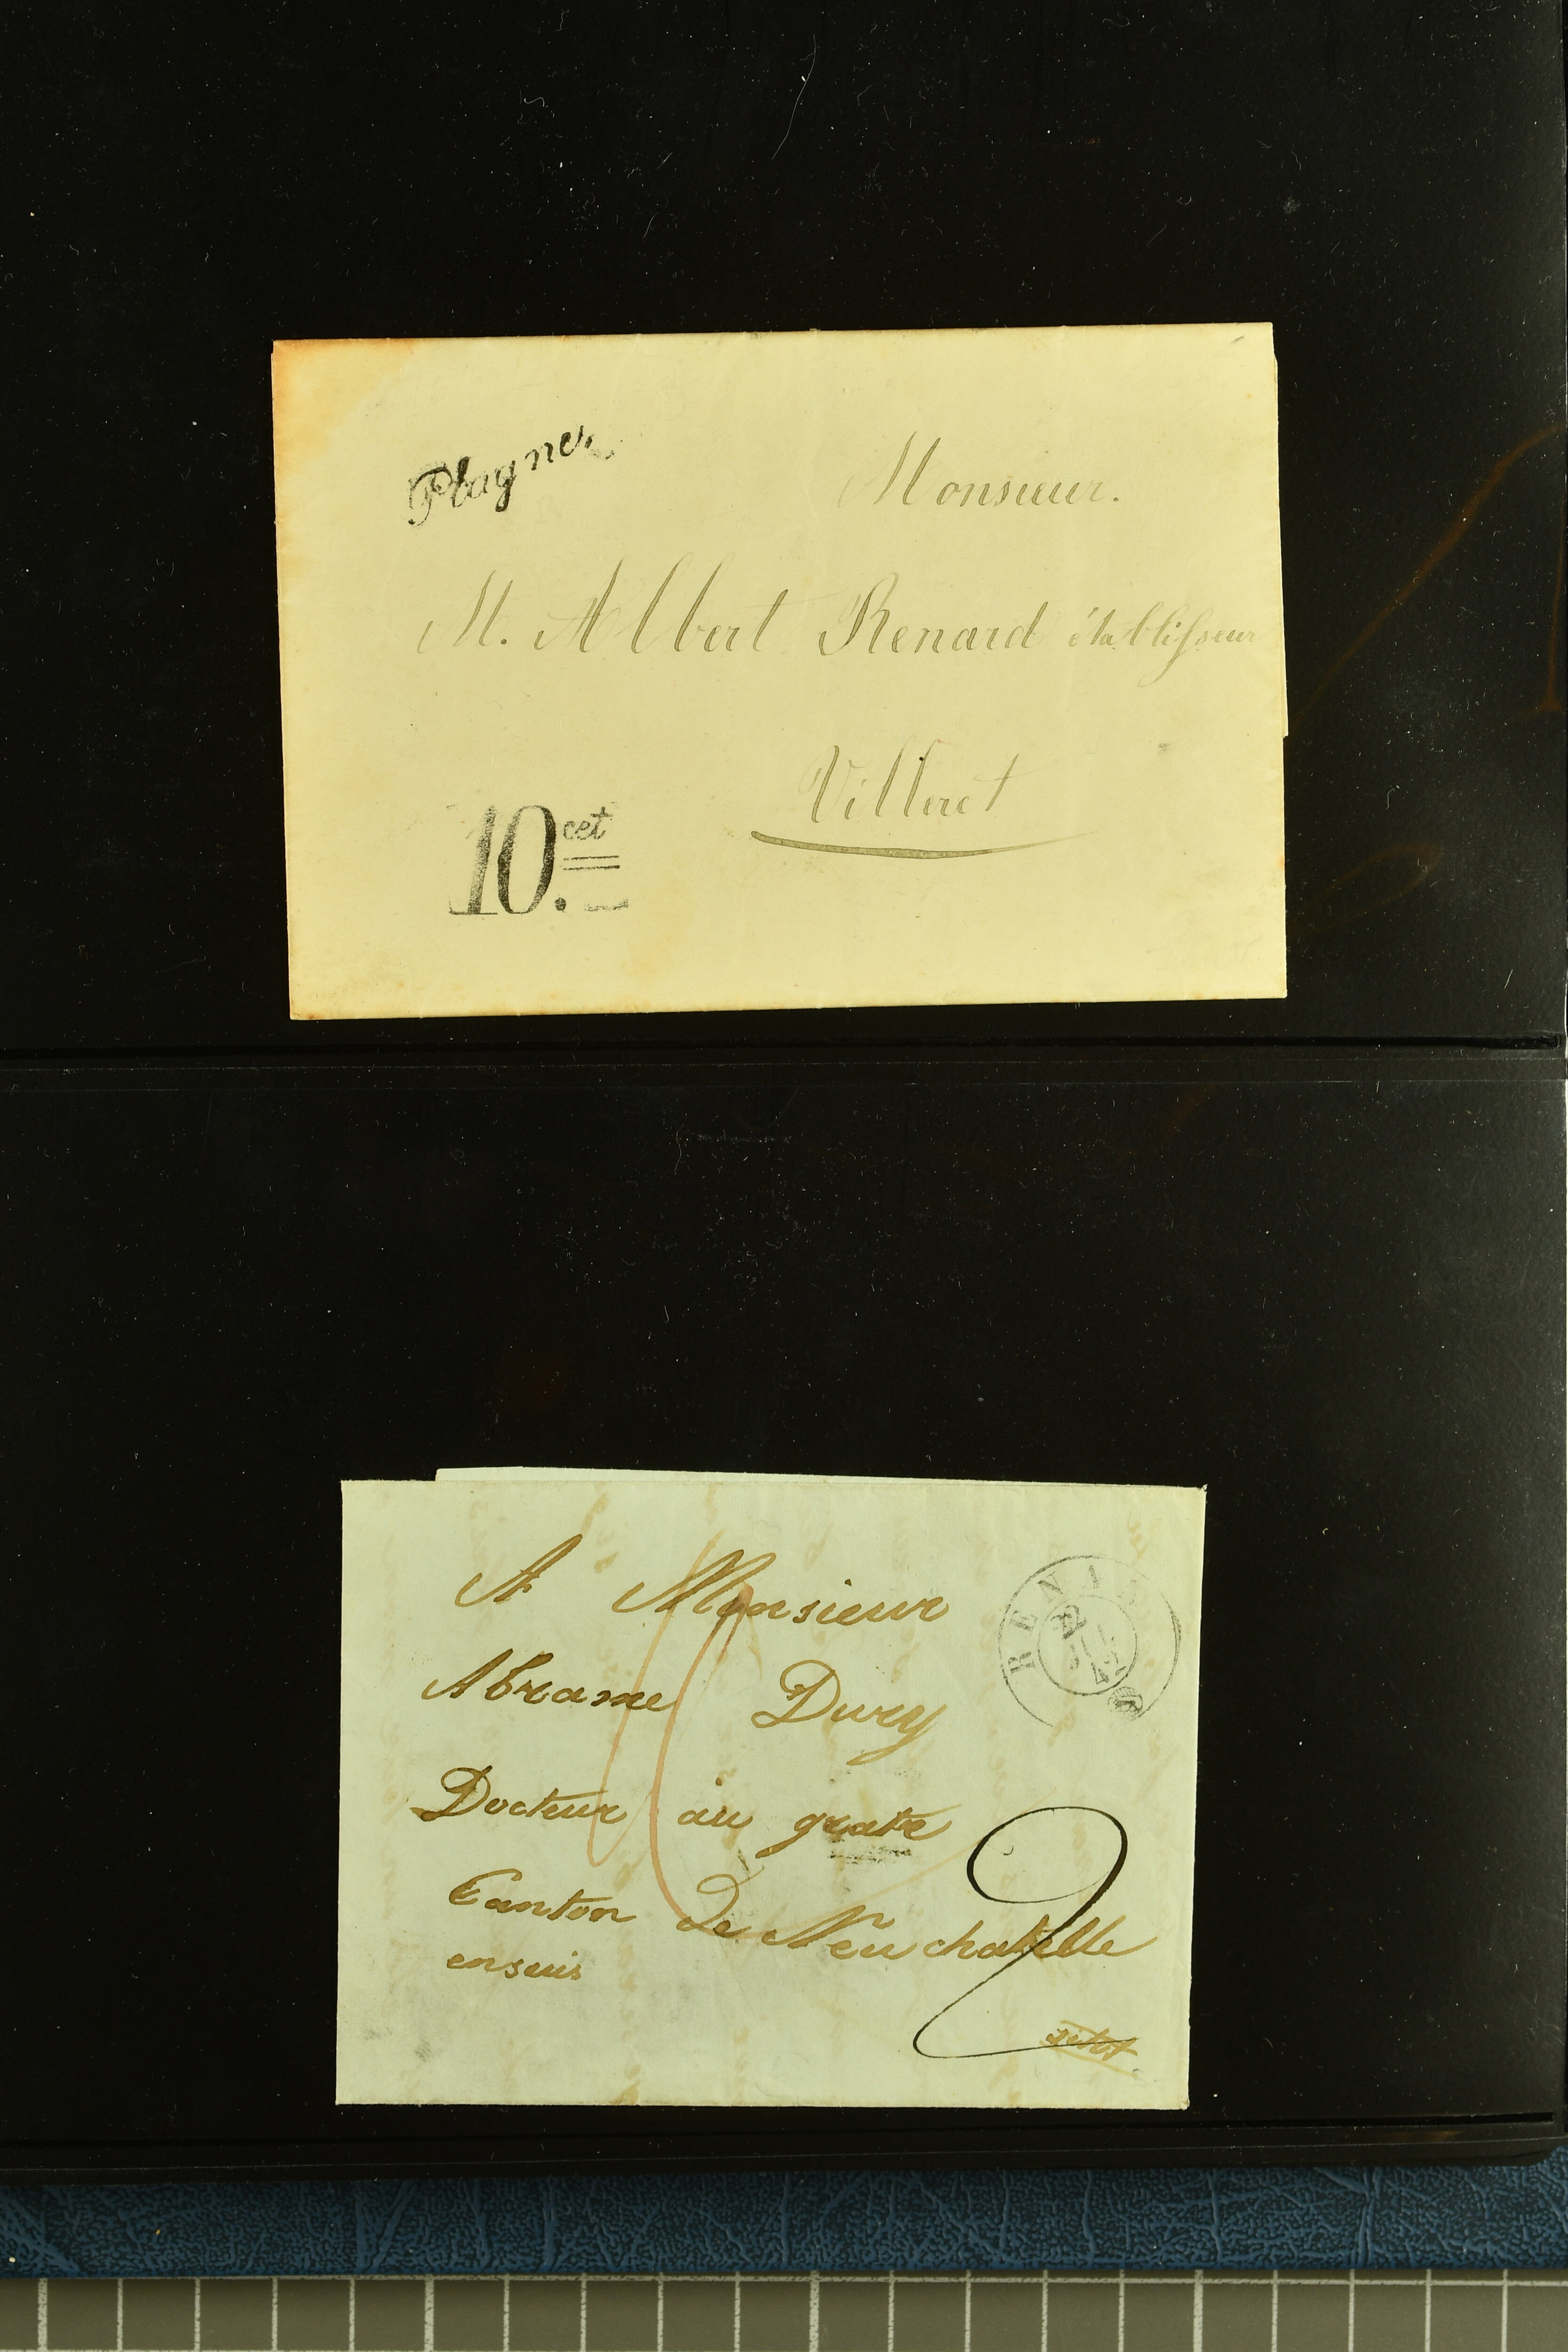 Plagne
Monsieur.
M. Albert Renard établisseur
Villeret
10. cet
A Monsieur
Abrame Dury
Docteur au grate
Canton de Neuchatelle
ensuis
RENAN
22
2